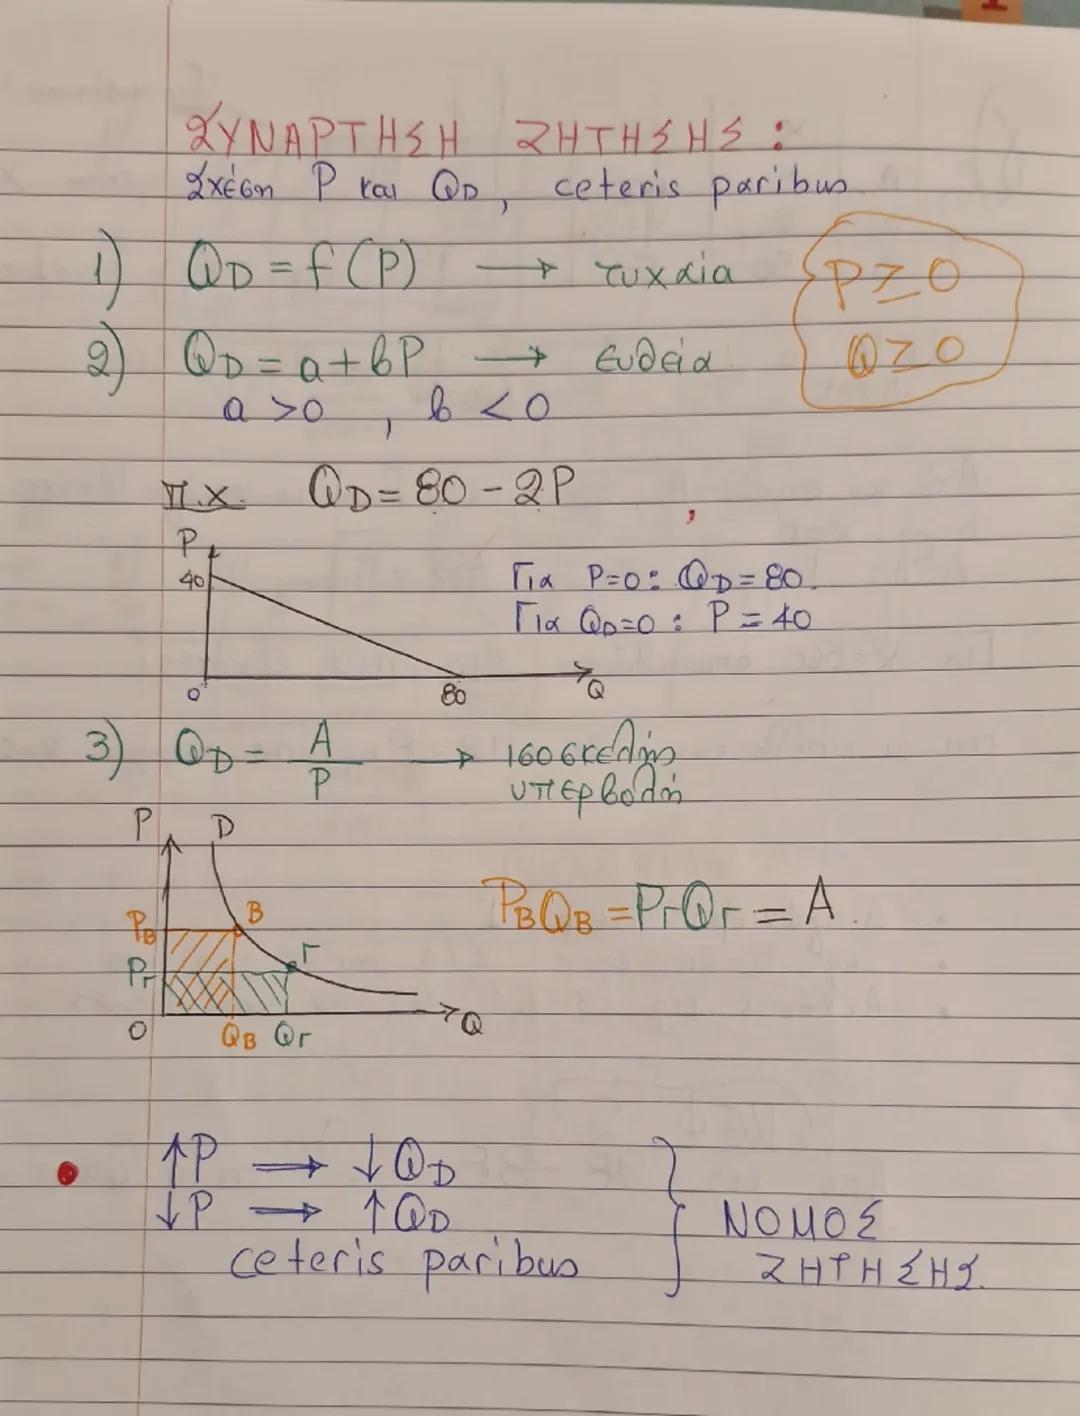 ΣΥΝΑΡΤΗΣΗ ΖΗΤΗΣΗΣ :
Σχέση P και QD, ceteris paribus
1) QD = f(P) → τυχαία
P ≥ 0
Q ≥ 0
2) QD = a + bP → ευθεία
a > 0 , b < 0
π.χ. QD = 80 - 2P
P
40
0
80
Q
Για P=0 : QD = 80.
Για QD=0 : P = 40
3) QD = A/P → ισοσκελής
υπερβολή
P D
PB B
PΓ Γ
0 QB QΓ Q
PBQB = PΓQΓ = A.
↑P → ↓QD
↓P → ↑QD
ceteris paribus
ΝΟΜΟΣ
ΖΗΤΗΣΗΣ.